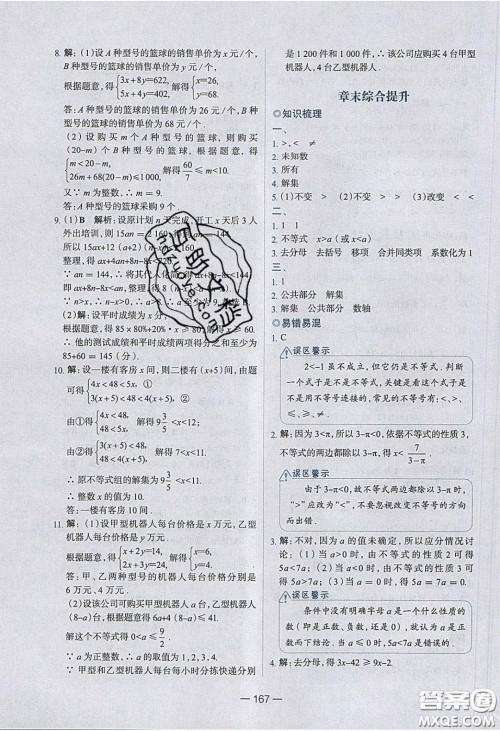 8. 解:(1)设A种型号的篮球的销售单价为x元/个,
B种型号的篮球的销售单价为y元/个,
根据题意,得{3x+8y=622, 5x+4y=402. 解得{x=26, y=68.
答:A种型号的篮球的销售单价为26元/个,B种
型号的篮球的销售单价为68元/个.
(2)设购买m个A种型号的篮球,则购买
(20-m)个B种型号的篮球,根据题意,得
{m<20-m, 26m+68(20-m)≤1000. 解得60/7≤m<10.
又∵m为整数,∴m最小=9.
答:A种型号的篮球采购9个.
9. (1)B 解析:设原计划n天完成,开工x天后3人
外出培训,则15an=2160,得an=144.
所以15ax+12(a+2)(n-x)<2160.
∴an=144.
∴n>x,∴n-x>0,∴a>8.
(2)解:设平时成绩为x分,
根据题意,得85×80%+20%·x≥80,解得x≥60.
∴他的测试成绩和平时成绩两项得分之和至少为
85+60=145(分).
10. 解:设一楼有客房x间,则二楼有(x+5)间,由题
可得{4x<48<5x, ① 3(x+5)<48<4(x+5). ②
由①得{4x<48, 5x>48. 解得9 3/5<x<12;
由②得{3(x+5)<48, 48<4(x+5). 解得7<x<11.
∴原不等式组的解集为9 3/5<x<11.
∴整数x的值为10.
答:一楼有客房10间.
11. 解:(1)设甲型机器人每台价格是x万元,乙型
机器人每台价格是y万元,
根据题意,得{x+2y=14, 2x+3y=24. 解得{x=6, y=4.
答:甲、乙两种型号的机器人每台价格分别是
6万元、4万元.
(2)设该公司可购买甲型机器人a台,乙型机器人
(8-a)台,根据题意得6a+4(8-a)≤41.
解这个不等式得0<a≤9/2.
∵a为正整数,∴a的取值为1,2,3,4.
∵甲型和乙型机器人每台每小时分拣快递分别
是1200件和1000件,∴该公司应购买4台甲型
机器人,4台乙型机器人.
章末综合提升
知识梳理
一、
1. >,<
2. 未知数
3. 所有
4. 解集
二、
1. (1)不变 > (2)不变 > > (3)改变 < <
2. 不等式 x>a(或x<a)
3. 去分母 去括号 移项 合并同类项 系数化为1
三、
2. 公共部分 解集
3. 解集 公共部分 数轴
易错易混
1. C
误区警示
2<-1虽不成立,但它仍是不等式.判断
一个式子是不是不等式,关键是看这个式子是
不是用不等号连接的,常见的不等号有:<、>、
≤、≥、≠.
2. 解:因为3<π,所以3-π<0.根据不等式的性质3,
不等式的两边都除以3-π,得x<7/(3-π).
误区警示
由于3-π<0,故不等式两边都除以3-π时,
“>”应改为“<”.不要忽视题中改变不等号的方
向的条件.
3. 解:不对,因为a的值未确定,所以应分情况讨
论:(1)当a>0时,由不等式的性质2可得
5a<7a;(2)当a<0时,由不等式的性质3可得
5a>7a;(3)当a=0时,5a=7a.
误区警示
条件中没有明确字母a是一个什么性质的
数(即是正数、负数还是0),就认为a是正
数而下结论.当a≤0时,5a<7a是错误的.
4. 解:去分母,得3x-42≥9x-2.
167
答案圈
MXQE.COM